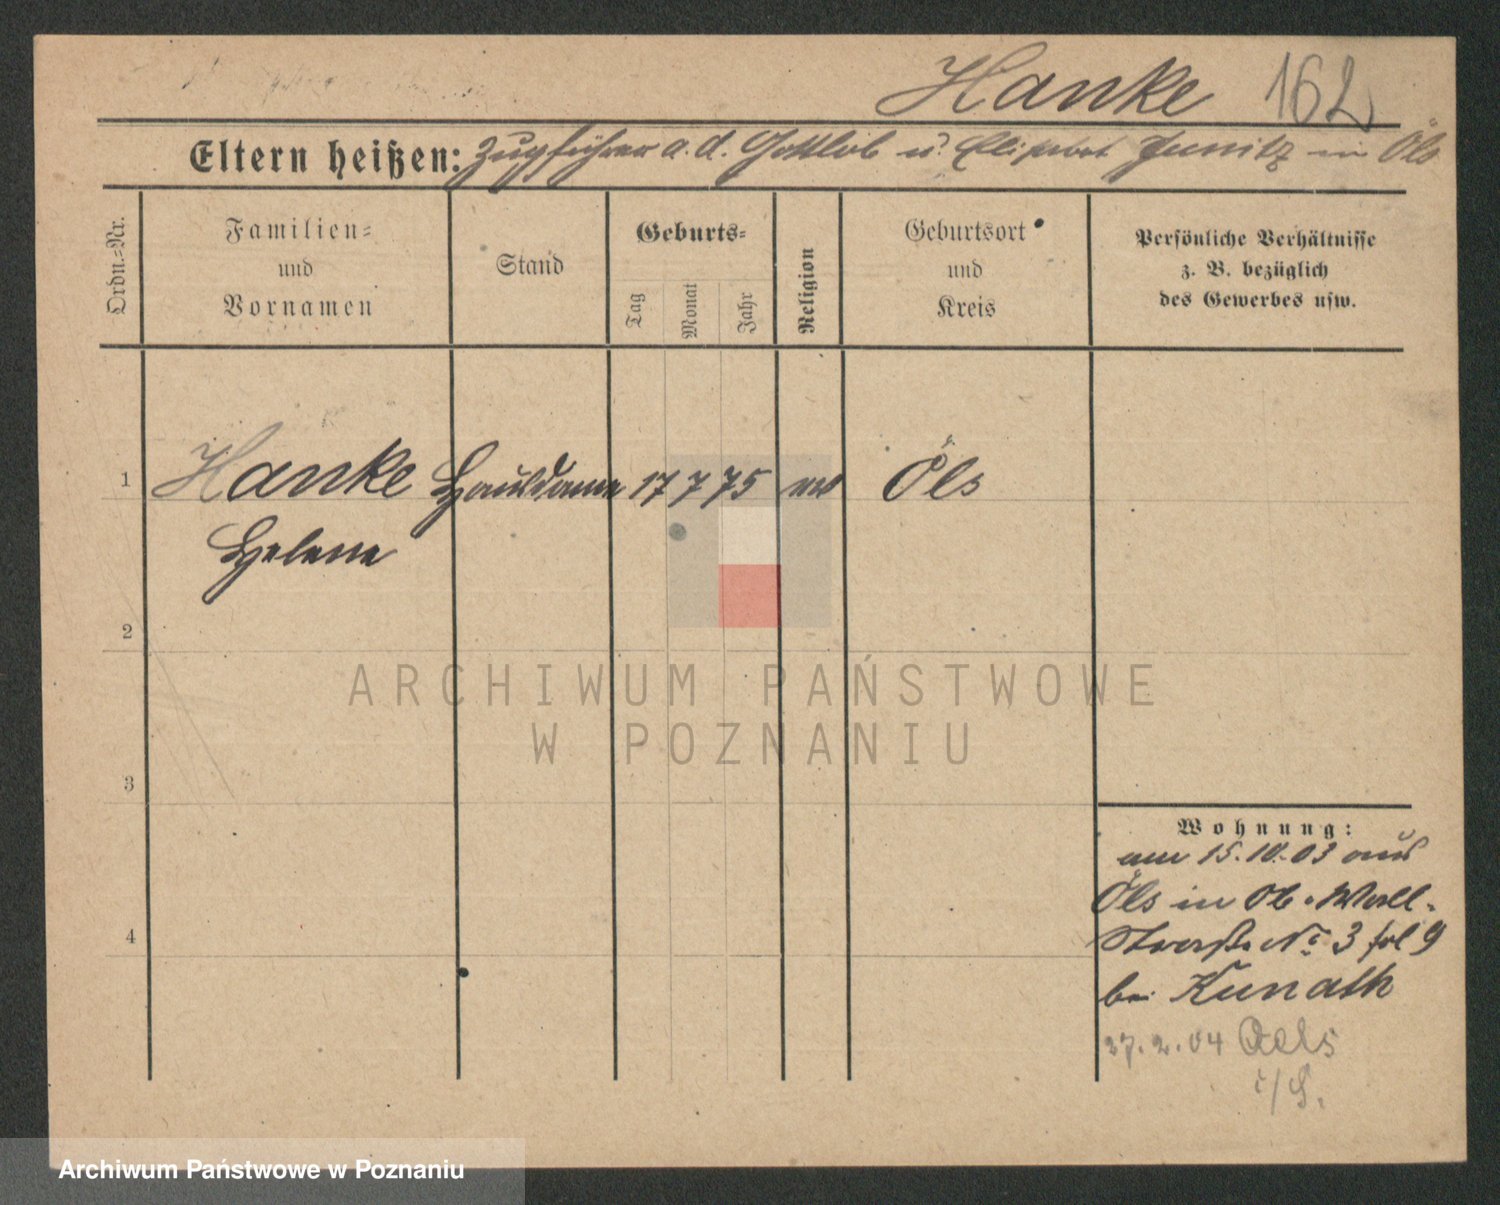 Hanke 162
Eltern heißen: Zugführer a. d. Gottlob u. Elisabet Junitz in Öls
Ordn.-Nr.
Familien-
und
Vornamen
Stand
Geburts-
Tag
Monat
Jahr
Religion
Geburtsort
und
Kreis
Persönliche Verhältnisse
z. B. bezüglich
des Gewerbes usw.
1 Hanke Hausdame 17 7 75 Öls
Helene
2
3
4
ARCHIWUM PAŃSTWOWE
W POZNANIU
Wohnung:
am 15.10.03 aus
Öls in Ob. Wall-
Straße No 3 fol 9
bei Kunath
27.2.04 Oels
i/S.
Archiwum Państwowe w Poznaniu